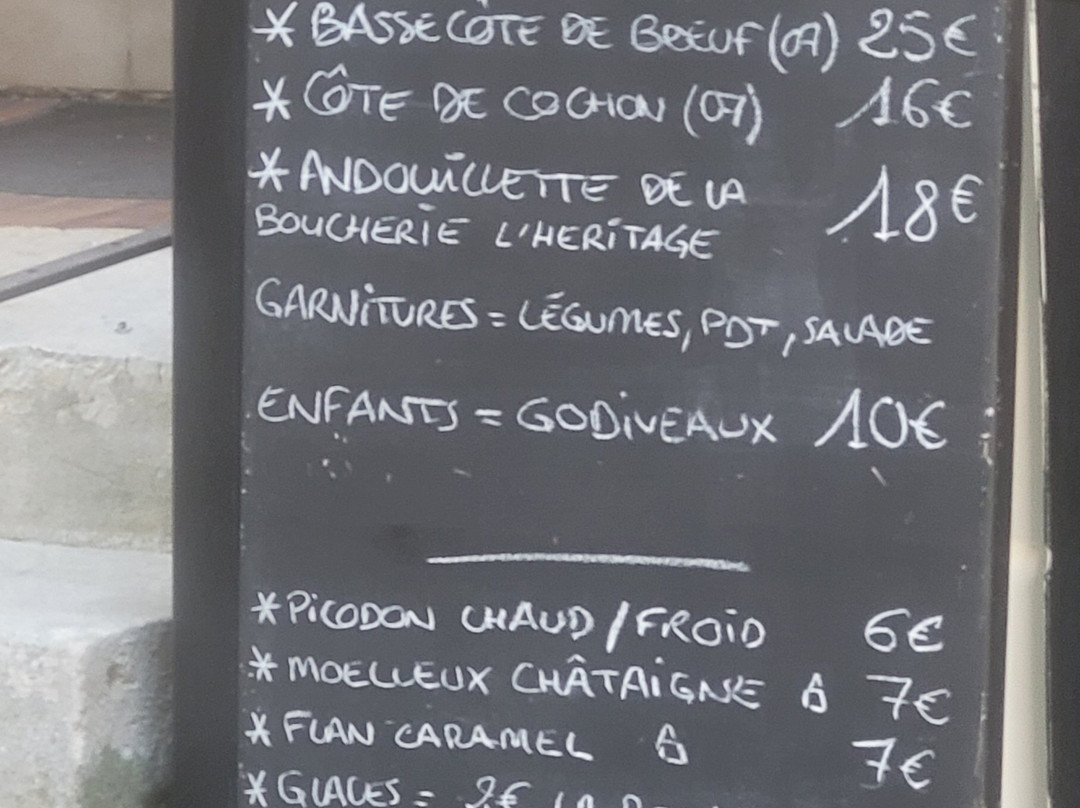 * BASSE CÔTE DE BOEUF (07) 25€
* CÔTE DE COCHON (07) 16€
* ANDOUILLETTE DE LA
BOUCHERIE L'HERITAGE 18€
GARNITURES = LÉGUMES, PDT, SALADE
ENFANTS = GODIVEAUX 10€
* PICODON CHAUD / FROID 6€
* MOELLEUX CHÂTAIGNE 7€
* FLAN CARAMEL 7€
* GLACES = 2€ LA